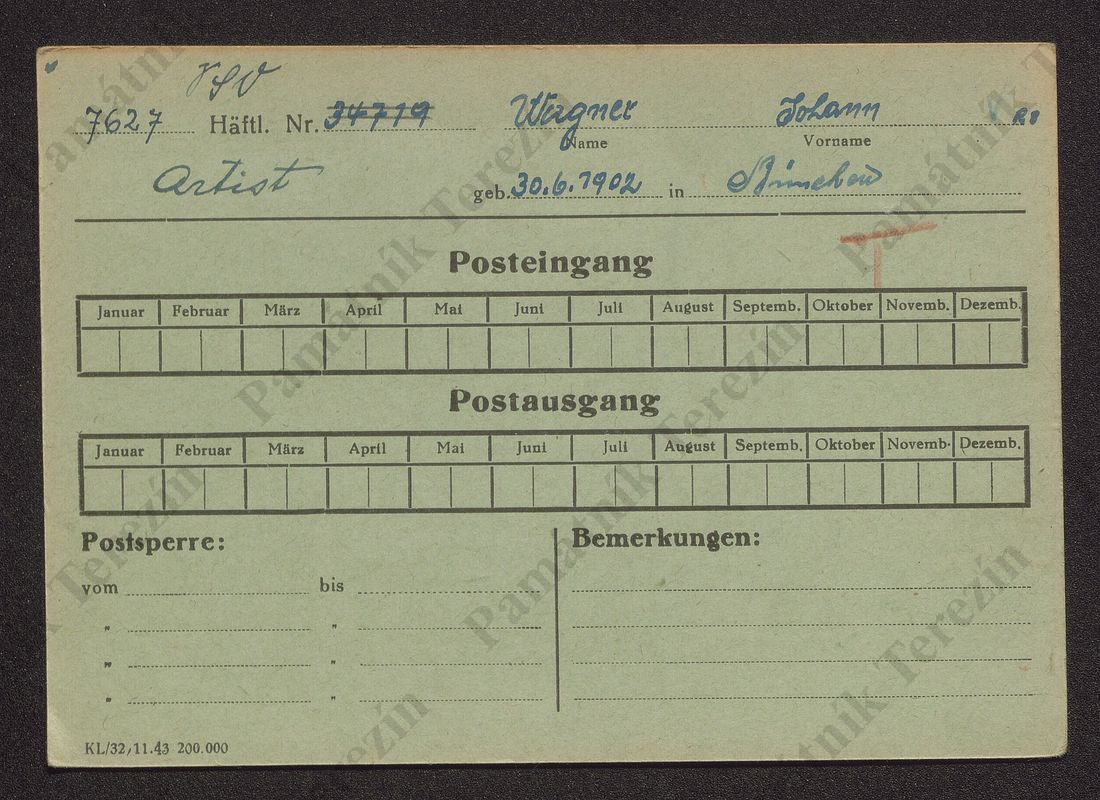 VSV
7627 Häftl. Nr. 34719 Wagner Johann
Name Vorname
Artist geb. 30.6.1902 in München
Posteingang
Januar Februar März April Mai Juni Juli August Septemb. Oktober Novemb. Dezemb.
Postausgang
Januar Februar März April Mai Juni Juli August Septemb. Oktober Novemb. Dezemb.
Postsperre: Bemerkungen:
vom bis
" "
" "
" "
KL/32, 11.43 200.000
Památník Terezín
Památník Terezín
Památník Terezín
Památník Terezín